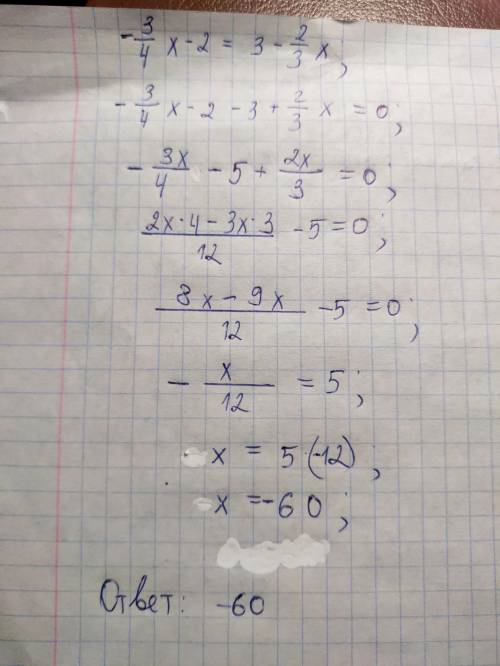 -3/4 x - 2 = 3 - 2/3 x;
-3/4 x - 2 - 3 + 2/3 x = 0;
- 3x/4 - 5 + 2x/3 = 0;
2x·4 - 3x·3/12 - 5 = 0;
8x - 9x/12 - 5 = 0;
- x/12 = 5;
x = 5·(-12);
x = -60;
Ответ: -60